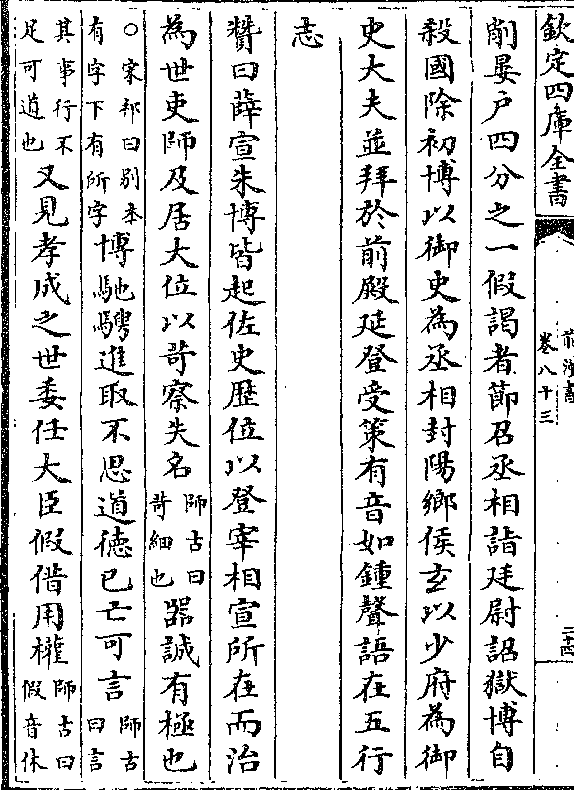 欽定四庫全書
前漢書
卷八十三
二十四
削晏戶四分之一假謁者節召丞相詣廷尉詔獄博自
殺國除初博以御史為丞相封陽鄉侯玄以少府為御
史大夫並拜於前殿延登受策有音如鍾聲語在五行
志
贊曰薛宣朱博皆起佐史歷位以登宰相宣所在而治
為世吏師及居大位以苛察失名師古曰苛細也器誠有極也
○宋祁曰别本有字下有所字博馳騁進取不思道德已亡可言師古曰言
其事行不足可道也又見孝成之世委任大臣假借用權師古曰假音休